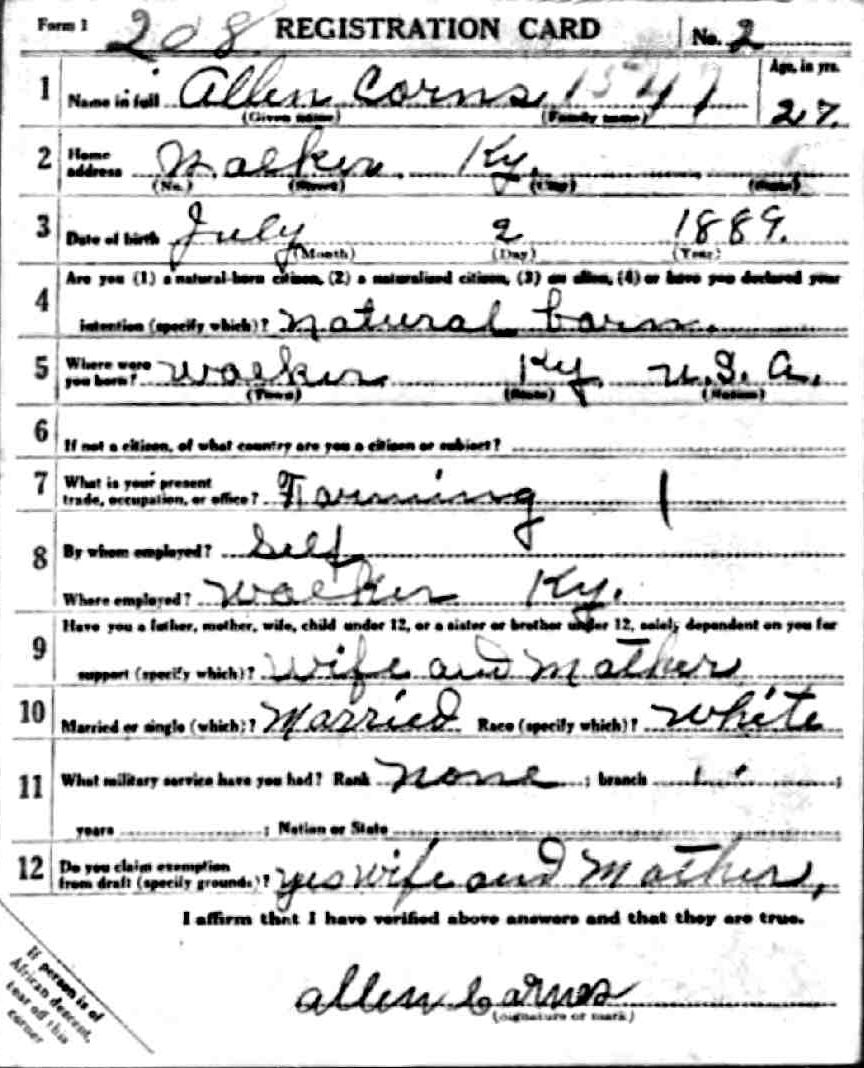 Form 1 208 REGISTRATION CARD No. 2
1 Name in full Allen Corns 1547 Age, in yrs. 27.
(Given name) (Family name)
2 Home address Walker Ky.
(No.) (Street) (City) (State)
3 Date of birth July 2 1889.
(Month) (Day) (Year)
4 Are you (1) a natural-born citizen, (2) a naturalized citizen, (3) an alien, (4) or have you declared your
intention (specify which)? natural born.
5 Where were you born? Walker Ky. U.S.A.
(Town) (State) (Nation)
6 If not a citizen, of what country are you a citizen or subject?
7 What is your present trade, occupation, or office? Farming 1
8 By whom employed? Self
Where employed? Walker Ky.
9 Have you a father, mother, wife, child under 12, or a sister or brother under 12, solely dependent on you for
support (specify which)? Wife and Mother
10 Married or single (which)? Married Race (specify which)? White
11 What military service have you had? Rank none ; branch ;
years ; Nation or State
12 Do you claim exemption from draft (specify grounds)? yes wife and Mother,
I affirm that I have verified above answers and that they are true.
allen Carnes
(signature or mark)
If person is of
African descent,
tear off this
corner